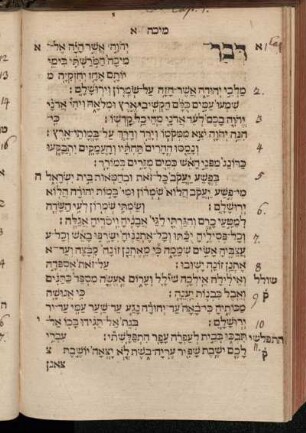 מיכה א
א דבר יהוה אשר היה אל
מיכה המרשתי בימי
יותם אחז יחזקיה מ
2. מלכי יהודה אשר חזה על שמרון וירושלם:
שמעו עמים כלם הקשיבי ארץ ומלאה ויהי אדני
3. יהוה בכם לעד אדני מהיכל קדשו: כי
הנה יהוה יצא ממקומו וירד ודרך על במותי ארץ:
4. ונמסו ההרים תחתיו והעמקים יתבקעו
כדונג מפני האש כמים מגרים במורד:
בפשע יעקב כל זאת ובחטאות בית ישראל ה
מי פשע יעקב הלוא שמרון ומי במות יהודה הלוא
6. ירושלם: ושמתי שמרון לעי השדה
למטעי כרם והגרתי לגי אבניה ויסדיה אגלה:
7. וכל פסיליה יכתו וכל אתנניה ישרפו באש וכל ע
עצביה אשים שממה כי מאתנן זונה קבצה ועד א
8. אתנן זונה ישובו: על זאת אספדה
שולל ואילילה אילכה שילל וערום אעשה מספד כתנים
9 ואבל כבנות יענה: כי אנושה
מכותיה כי באה עד יהודה נגע עד שער עמי עד יר
10 ירושלם: בגת אל תגידו בכו אל י
התפלשי תבכו בבית לעפרה עפר התפלשתי: עברי
לכם יושבת שפיר עריה בשת לא יצאה יושבת צ
צאנן